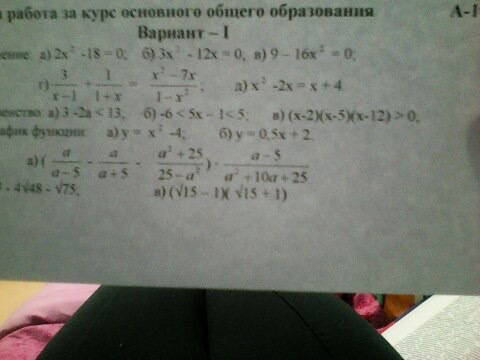 работа за курс основного общего образования А-1
Вариант – I
ение: а) 2x² -18 = 0; б) 3x² - 12x = 0, в) 9 – 16x² = 0;
г) 3/(x-1) + 1/(1+x) = (x² – 7x)/(1-x²); д) x² -2x = x + 4.
венство: а) 3 -2a < 13, б) -6 < 5x – 1 < 5; в) (x-2)(x-5)(x-12) > 0;
афик функции: а) y = x² -4; б) y = 0,5x + 2.
а) ( a/(a-5) - a/(a+5) - (a² + 25)/(25 – a²) ) · (a – 5)/(a² +10a + 25)
- 4√48 - √75; в) (√15 – 1)( √15 + 1)